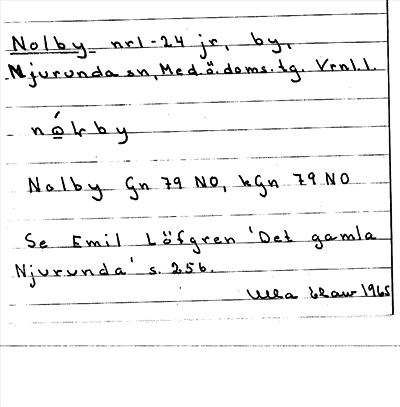 Nolby nr 1-24 jr, by,
Njurunda sn, Med.ö.doms.tg. Vrnl.l.
Nolby Gn 79 NO, kGn 79 NO
Se Emil Löfgren 'Det gamla
Njurunda' s. 256.
1965